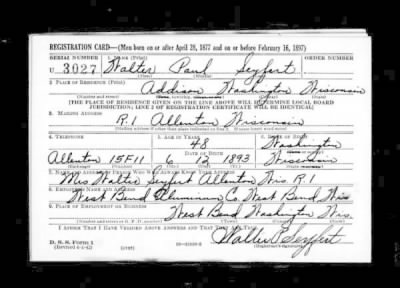 REGISTRATION CARD—(Men born on or after April 28, 1877 and on or before February 16, 1897)
SERIAL NUMBER 1. NAME (Print) ORDER NUMBER
U 3027 Walter Paul Seyfert
(First) (Middle) (Last)
2. PLACE OF RESIDENCE (Print)
Addison Washington Wisconsin
[THE PLACE OF RESIDENCE GIVEN ON THE LINE ABOVE WILL DETERMINE LOCAL BOARD
JURISDICTION; LINE 2 OF REGISTRATION CERTIFICATE WILL BE IDENTICAL]
3. MAILING ADDRESS
R.1 Allenton Wisconsin
4. TELEPHONE 5. AGE IN YEARS 6. PLACE OF BIRTH
48 Washington
DATE OF BIRTH
Allenton 15F11 6 12 1893 Wisconsin
7. NAME AND ADDRESS OF PERSON WHO WILL ALWAYS KNOW YOUR ADDRESS
Mrs Walter Seyfert Allenton Wis R.1
8. EMPLOYER'S NAME AND ADDRESS
West Bend Aluminum Co. West Bend Wis
9. PLACE OF EMPLOYMENT OR BUSINESS
West Bend Washington Wis.
I AFFIRM THAT I HAVE VERIFIED ABOVE ANSWERS AND THAT THEY ARE TRUE.
D. S. S. Form 1
(Revised 4-1-42)
Walter P Seyfert